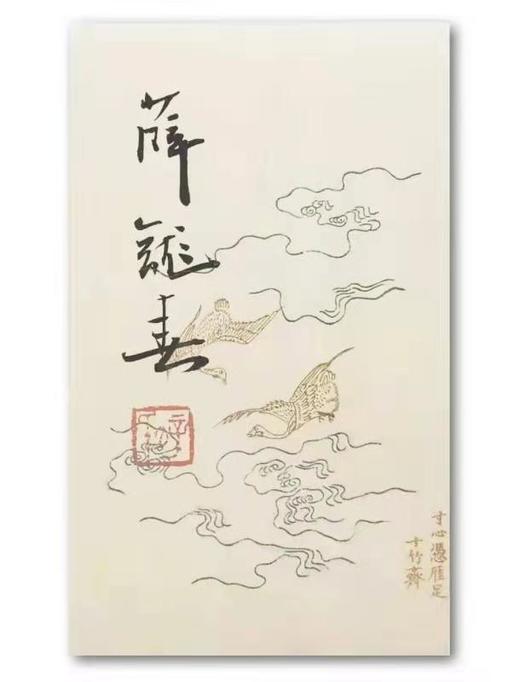 薛龍春
寸心憑雁足
十竹齋